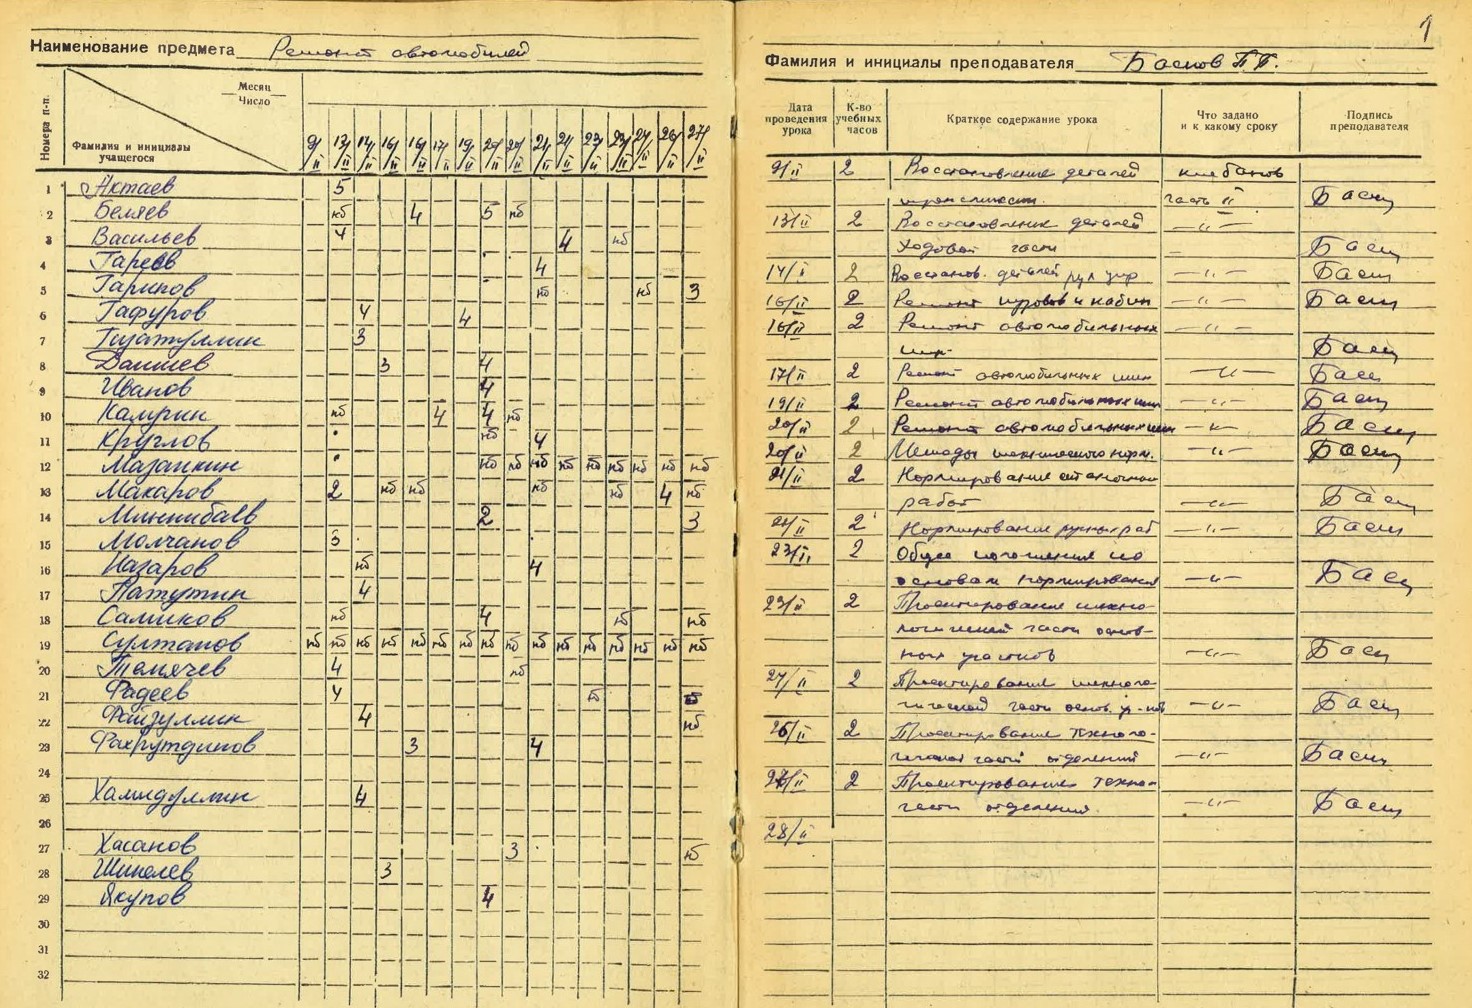 1
Наименование предмета Ремонт автомобилей
Месяц
Число
Номера п-п.
Фамилия и инициалы
учащегося
9/II 13/II 14/II 16/II 16/II 17/II 19/II 20/II 20/II 21/II 21/II 23/II 23/II 24/II 26/II 27/II
1 Актаев 5
2 Беляев нб 4 5 нб
3 Васильев 4 4 нб
4 Гареев 4
5 Гарипов нб нб 3
6 Гафуров 4 4
7 Гизатуллин 3
8 Даншев 3 4
9 Иванов 4
10 Камрин нб 4 4 нб
11 Круглов • нб 4
12 Мазанкин • нб нб нб нб нб нб нб нб нб
13 Макаров 2 нб нб нб нб 4 нб
14 Миннибаев 2 3
15 Молчанов 3
16 Назаров нб 4
17 Патутин 4
18 Салихов нб 4 нб нб
19 Султанов нб нб нб нб нб нб нб нб нб нб нб нб нб нб нб нб
20 Темячев 4 нб
21 Фадеев 4 нб нб
22 Файзуллин 4 нб
23 Фахрутдинов 3 4
24
25 Хамидуллин 4
26
27 Хасанов 3 нб
28 Шипелев 3
29 Якупов 4
30
31
32
Фамилия и инициалы преподавателя Баснов П.Г.
Дата
проведения
урока
К-во
учебных
часов
Краткое содержание урока
Что задано
и к какому сроку
Подпись
преподавателя
9/II 2 Восстановление деталей
трансмиссии. часть II Басн
13/II 2 Восстановление деталей —"—
ходовой части Басн
14/II 2 Восстанов. деталей рул упр —"— Басн
16/II 2 Ремонт кузовов и кабин —"— Басн
16/II 2 Ремонт автомобильных —"—
шин. Басн
17/II 2 Ремонт автомобильных шин —"— Басн
19/II 2 Ремонт автомобильных шин —"— Басн
20/II 2 Ремонт автомобильных шин —"— Басн
20/II 2 Методы технического норм. —"— Басн
21/II 2 Нормирование станочных
работ —"— Басн
21/II 2 Нормирование ручных раб —"— Басн
23/II 2 Общие положения по
основам нормирования —"— Басн
23/II 2 Проектирование техно-
логической части основ-
ных участков —"— Басн
24/II 2 Проектирование техноло-
гической части основ. уч-ков —"— Басн
26/II 2 Проектирование техноло-
гической части отделений —"— Басн
27/II 2 Проектирование техно-
части отделения. —"— Басн
28/II